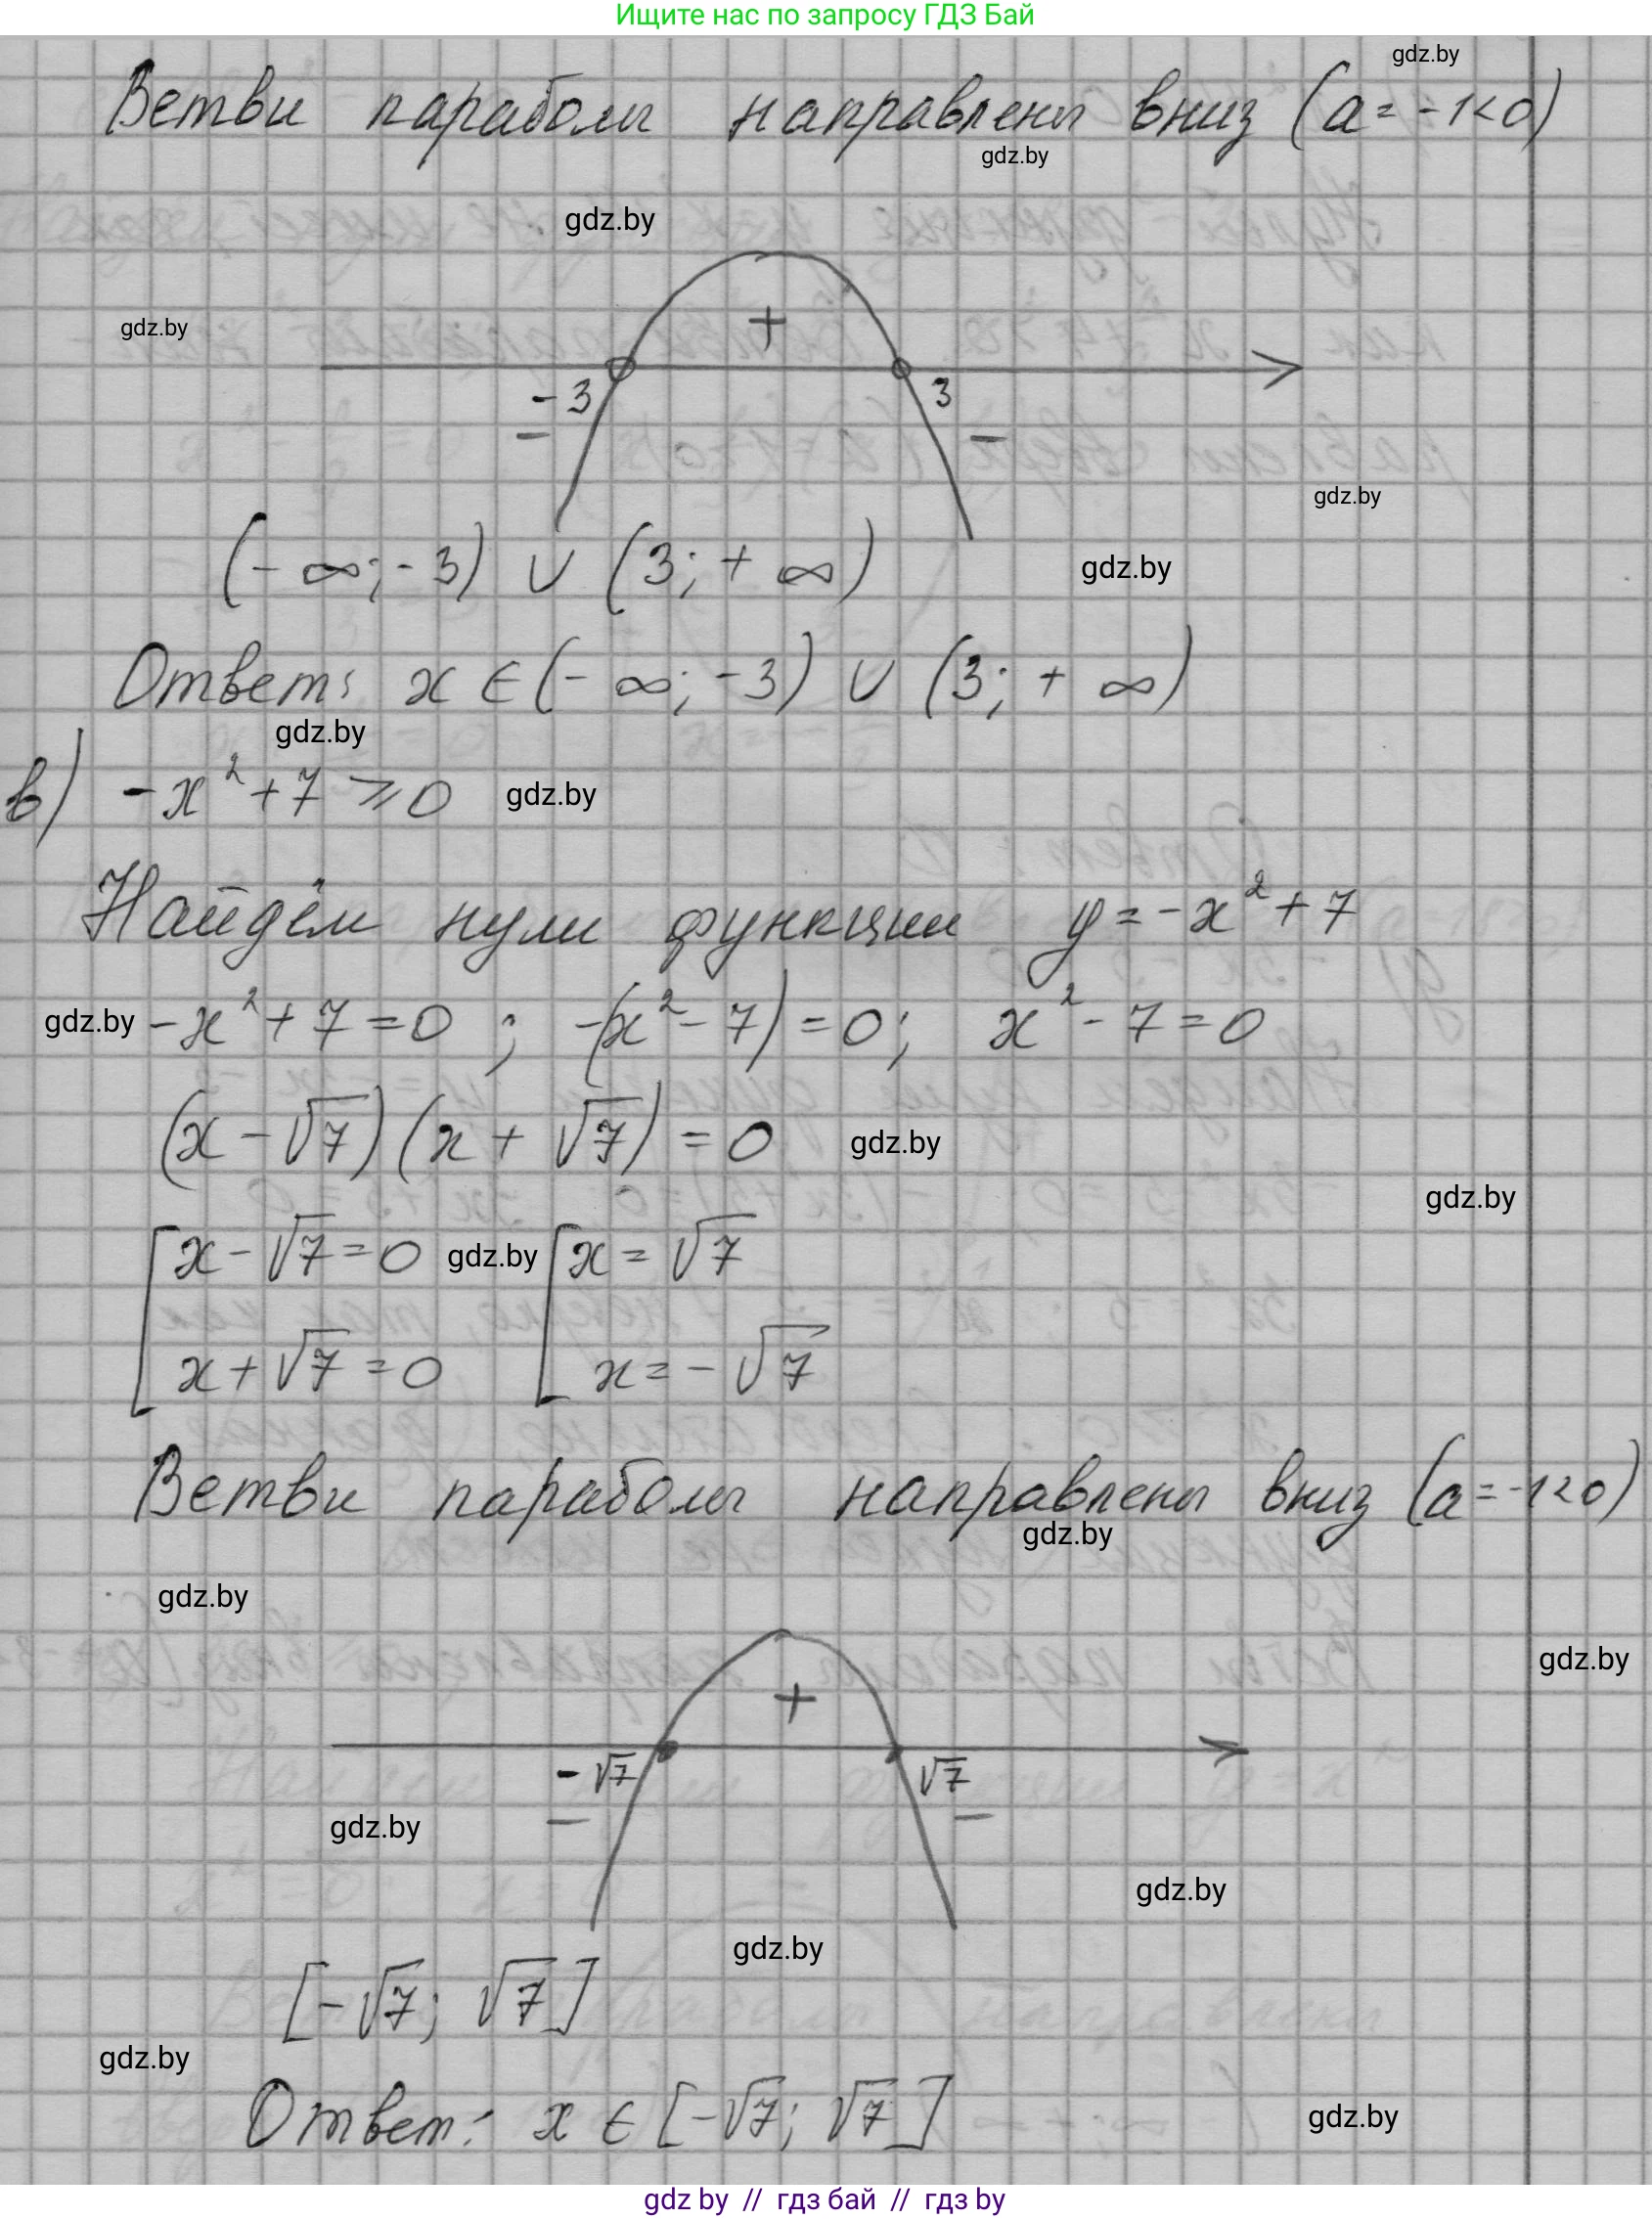 Ищите нас по запросу ГДЗ Бай
gdz.by
Ветви параболы направлены вниз (a = -1<0)
gdz.by
gdz.by
gdz.by
+
-3 3
- -
gdz.by
(-∞; -3) ∪ (3; +∞)
gdz.by
Ответ: x ∈ (-∞; -3) ∪ (3; +∞)
gdz.by
в) -x² + 7 ⩾ 0
gdz.by
Найдём нули функции y = -x² + 7
gdz.by
-x² + 7 = 0 ; -(x² - 7) = 0; x² - 7 = 0
(x - √7)(x + √7) = 0
gdz.by
gdz.by
[x - √7 = 0 gdz.by [x = √7
x + √7 = 0 x = -√7
Ветви параболы направлены вниз (a = -1<0)
gdz.by
gdz.by
gdz.by
+
-√7 √7
- -
gdz.by
gdz.by
gdz.by
[-√7; √7]
gdz.by
Ответ: x ∈ [-√7; √7]
gdz.by
gdz by // гдз бай // гдз by